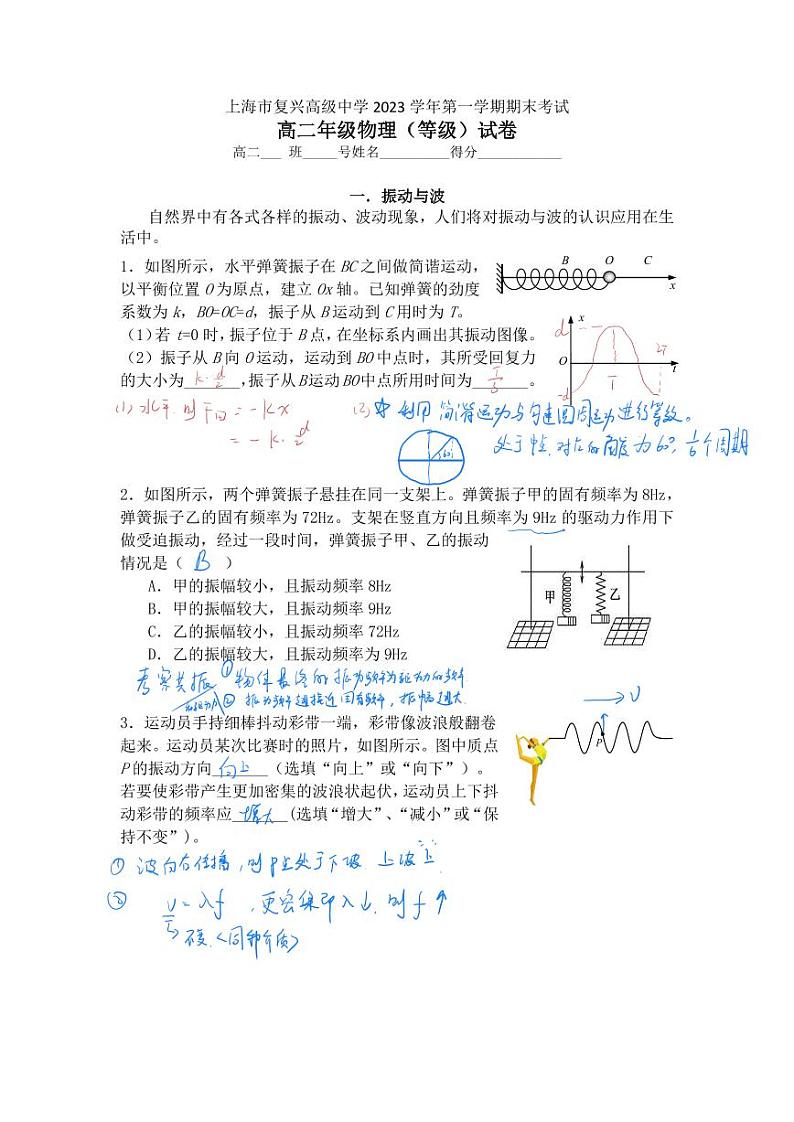 上海市复兴高级中学 2023 学年第一学期期末考试
高二年级物理（等级）试卷
高二___ 班_____号姓名__________得分____________
一．振动与波
自然界中有各式各样的振动、波动现象，人们将对振动与波的认识应用在生
活中。
1．如图所示，水平弹簧振子在 BC 之间做简谐运动，
以平衡位置 O 为原点，建立 Ox 轴。已知弹簧的劲度
系数为 k，BO=OC=d，振子从 B 运动到 C 用时为 T。
（1）若 t=0 时，振子位于 B 点，在坐标系内画出其振动图像。
（2）振子从 B 向 O 运动，运动到 BO 中点时，其所受回复力
的大小为 k·d/2 ，振子从 B 运动 BO 中点所用时间为 T/3 。
B O C
x
x
d
O
-d
T
2T
t
(1) 水平，则 F回 = -kx
= -k·d/2
(2) 利用简谐运动与匀速圆周运动进行等效。
处于中点，对应的角度为60°，1/6个周期
60°
2．如图所示，两个弹簧振子悬挂在同一支架上。弹簧振子甲的固有频率为 8Hz，
弹簧振子乙的固有频率为 72Hz。支架在竖直方向且频率为 9Hz 的驱动力作用下
做受迫振动，经过一段时间，弹簧振子甲、乙的振动
情况是（ B ）
A．甲的振幅较小，且振动频率 8Hz
B．甲的振幅较大，且振动频率 9Hz
C．乙的振幅较小，且振动频率 72Hz
D．乙的振幅较大，且振动频率为 9Hz
甲
乙
考察共振 ① 物体最终的振动频率为驱动力的频率
② 振动频率越接近固有频率，振幅越大
3．运动员手持细棒抖动彩带一端，彩带像波浪般翻卷
起来。运动员某次比赛时的照片，如图所示。图中质点
P 的振动方向 向上 （选填“向上”或“向下”）。
若要使彩带产生更加密集的波浪状起伏，运动员上下抖
动彩带的频率应 增大 (选填“增大”、“减小”或“保
持不变”)。
v
P
① 波向右传播，则P点处于下坡，上坡上
② v = λf ，更密集即λ↓，则 f ↑
不变〈同种介质〉